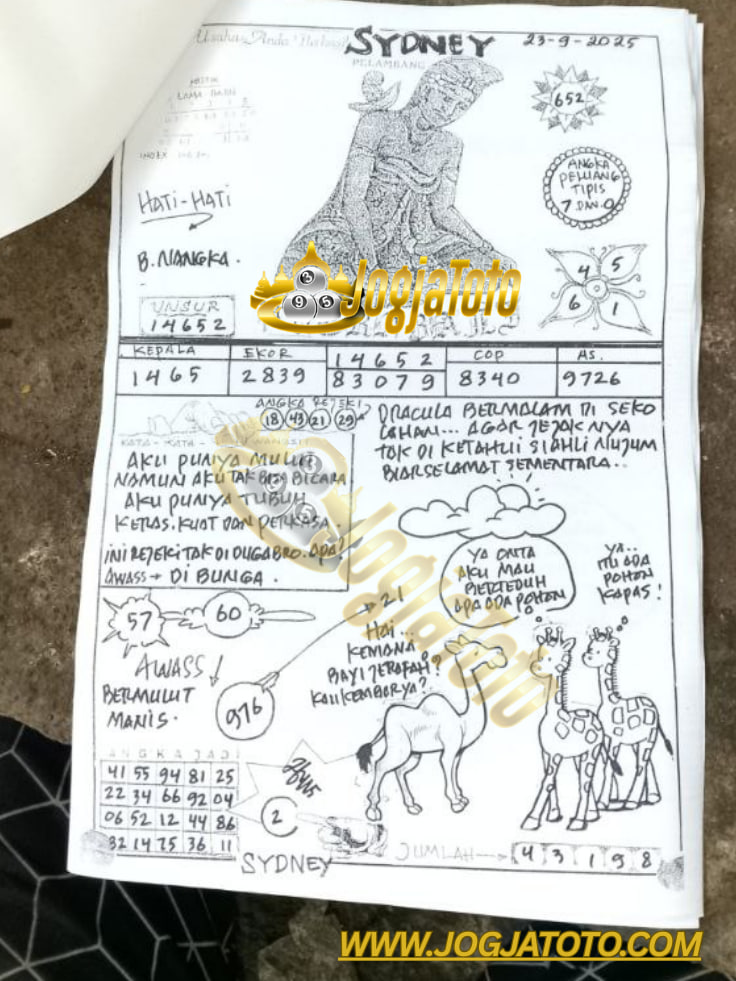 Usaha Anda Berhasil
SYDNEY
23-9-2025
PELAMBANG
LAMA BARU
652
ANGKA
PELUANG
TIPIS
7 DAN 0
HATI-HATI
B. NANGKA.
4 5
6 1
UNSUR
14652
JogjaToto
KEPALA EKOR 14652 COP AS.
1465 2839 83079 8340 9726
ANGKA REJEKI
18 43 21 29
DRACULA BERMALAM DI SEKO
LAHAN... AGAR JEJAK NYA
TAK DI KETAHUI SI AHLI NUJUM
BIAR SELAMAT SEMENTARA..
KATA - KATA - WANGSIT
AKU PUNYA MULUT
NAMUN AKU TAK BISA BICARA
AKU PUNYA TUBUH
KERAS. KUAT DAN PERKASA.
INI REJEKI TAK DI DUGA BRO. APA?
AWASS → DI BUNGA.
JogjaToto
YA ONTA
AKU MAU
BERTEDUH
APA ADA POHON
YA..
ITU ADA
POHON
KAPAS!
57
60
21
HAI...
KEMANA
BAYI JERAFAH?
KAU KEMBARYA?
AWASS!
BERMULUT
MANIS.
976
ANGKA JADI
41 55 94 81 25
22 34 66 92 04
06 52 12 44 86
32 14 75 36 11
2
SYDNEY
JUMLAH
4 3 1 9 8
WWW.JOGJATOTO.COM